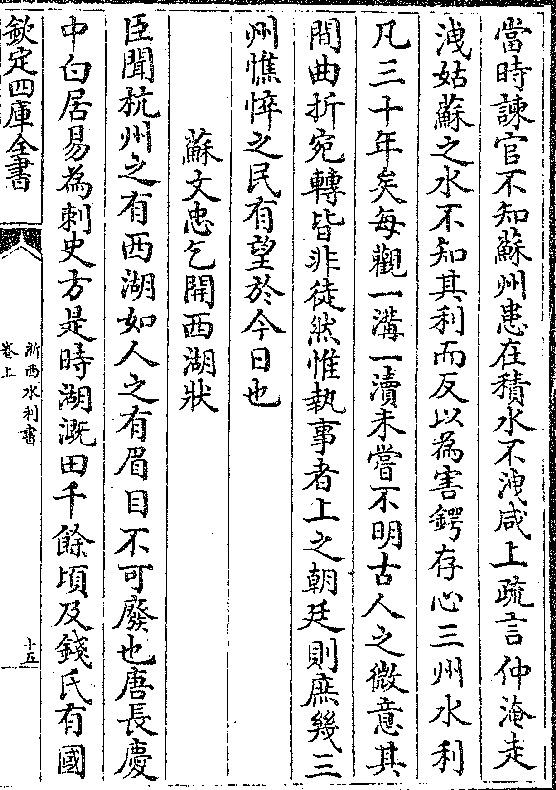 當時諫官不知蘇州患在積水不洩咸上疏言仲淹走
洩姑蘇之水不知其利而反以為害鍔存心三州水利
凡三十年矣每觀一溝一瀆未嘗不明古人之微意其
間曲折宛轉皆非徒然惟執事者上之朝廷則庶幾三
州憔悴之民有望於今日也
蘇文忠乞開西湖狀
臣聞杭州之有西湖如人之有眉目不可廢也唐長慶
中白居易為刺史方是時湖溉田千餘頃及錢氏有國
欽定四庫全書
浙西水利書
卷上
十五